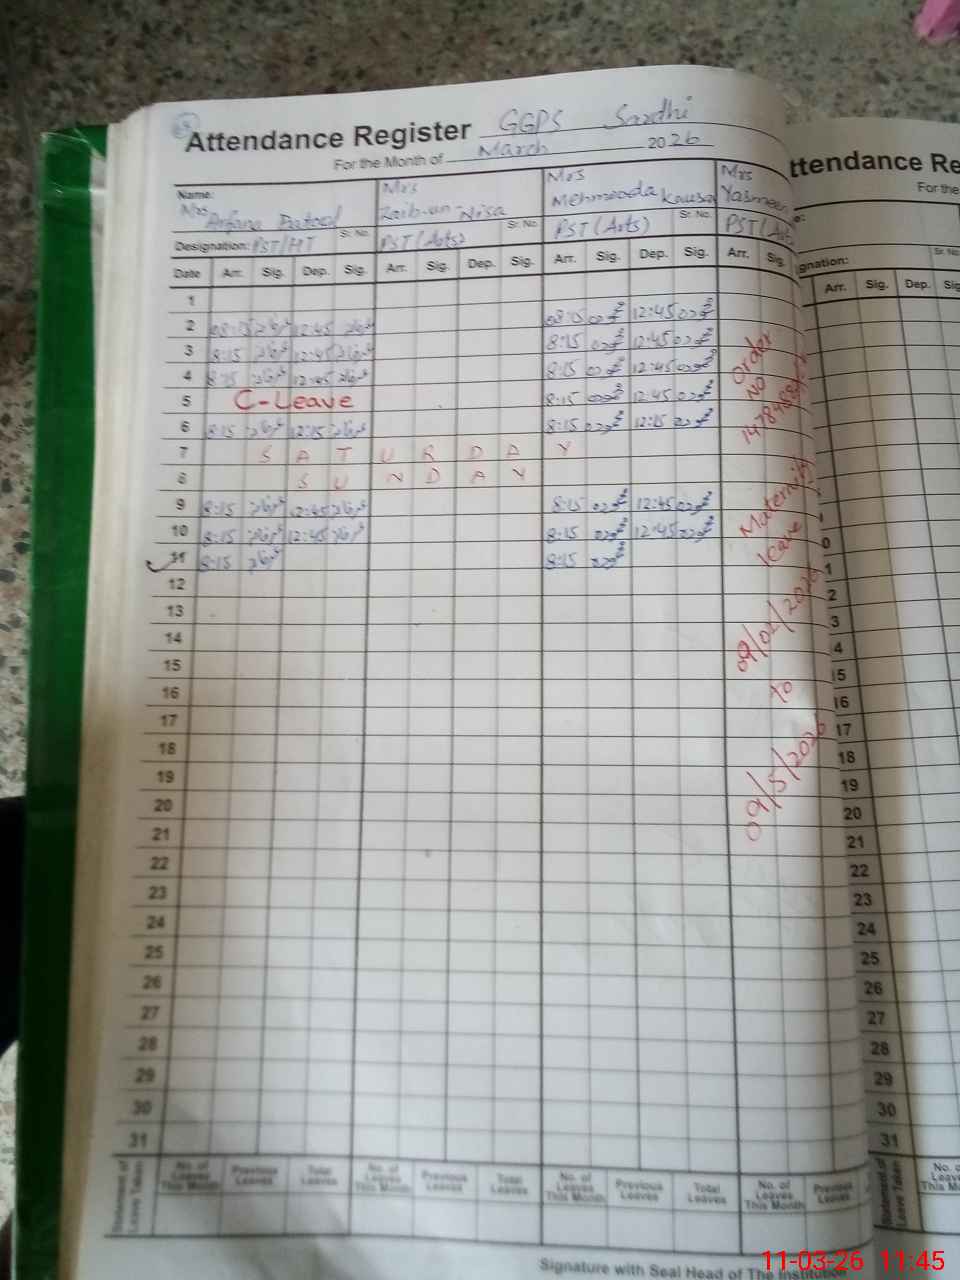 Attendance Register GGPS Sardhi
For the Month of March 2026
Name: Mrs Arfana Batool
Mrs Zaib-un-Nisa
Mrs Mehmooda Kausar
Mrs Yasmeen
Designation: PST/HT Sr. No.
PST (Arts) Sr. No.
PST (Arts) Sr. No.
Date Arr. Sig. Dep. Sig. Arr. Sig. Dep. Sig. Arr. Sig. Dep. Sig. Arr. Sig.
1
2 08:15 12:45 08:15 12:45
3 8:15 12:45 8:15 12:45
4 8:15 12:45 8:15 12:45
5 C-Leave 8:15 12:45
6 8:15 12:15 8:15 12:15
7 S A T U R D A Y
8 S U N D A Y
9 8:15 12:45 8:15 12:45
10 8:15 12:45 8:15 12:45
11 8:15 8:15
12
13
14
15
16
17
18
19
20
21
22
23
24
25
26
27
28
29
30
31
Order
No
Maternity
leave
09/02/2026
to
09/5/2026
Statement of Leave Taken
No. of Leaves This Month Previous Leaves Total Leaves No. of Leaves This Month Previous Leaves Total Leaves No. of Leaves This Month Previous Leaves Total Leaves No. of Leaves This Month Previous Leaves
Signature with Seal Head of The Institution
ttendance Re
For the
gnation: Sr. No
Arr. Sig. Dep. Sig
0
1
2
3
4
15
16
17
18
19
20
21
22
23
24
25
26
27
28
29
30
31
Statement of Leave Taken
No. o
Leave
This M
11-03-26 11:45